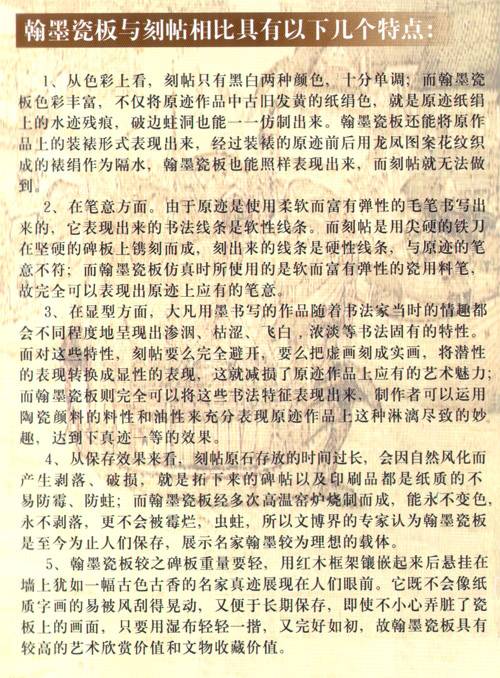 翰墨瓷板与刻帖相比具有以下几个特点:
1、从色彩上看，刻帖只有黑白两种颜色，十分单调；而翰墨瓷
板色彩丰富，不仅将原迹作品中古旧发黄的纸绢色，就是原迹纸绢
上的水迹残痕，破边蛀洞也能一一仿制出来。翰墨瓷板还能将原作
品上的装裱形式表现出来，经过装裱的原迹前后用龙凤图案花纹织
成的裱绢作为隔水，翰墨瓷板也能照样表现出来，而刻帖就无法做
到。
2、在笔意方面。由于原迹是使用柔软而富有弹性的毛笔书写出
来的，它表现出来的书法线条是软性线条。而刻帖是用尖硬的铁刀
在坚硬的碑板上镌刻而成，刻出来的线条是硬性线条，与原迹的笔
意不符；而翰墨瓷板仿真时所使用的是软而富有弹性的瓷用料笔，
故完全可以表现出原迹上应有的笔意。
3、在显型方面，大凡用墨书写的作品随着书法家当时的情趣都
会不同程度地呈现出渗洇、枯涩、飞白，浓淡等书法固有的特性。
面对这些特性，刻帖要么完全避开，要么把虚画刻成实画，将潜性
的表现转换成显性的表现，这就减损了原迹作品上应有的艺术魅力；
而翰墨瓷板则完全可以将这些书法特征表现出来，制作者可以运用
陶瓷颜料的料性和油性来充分表现原迹作品上这种淋漓尽致的妙
趣，达到下真迹一等的效果。
4、从保存效果来看，刻帖原石存放的时间过长，会因自然风化而
产生剥落、破损，就是拓下来的碑帖以及印刷品都是纸质的不
易防霉、防蛀；而翰墨瓷板经多次高温窑炉烧制而成，能永不变色，
永不剥落，更不会被霉烂，虫蛀，所以文博界的专家认为翰墨瓷板
是至今为止人们保存，展示名家翰墨较为理想的载体。
5、翰墨瓷板较之碑板重量要轻，用红木框架镶嵌起来后悬挂在
墙上犹如一幅古色古香的名家真迹展现在人们眼前。它既不会像纸
质字画的易被风刮得晃动，又便于长期保存，即使不小心弄脏了瓷
板上的画面，只要用湿布轻轻一揩，又完好如初，故翰墨瓷板具有
较高的艺术欣赏价值和文物收藏价值。